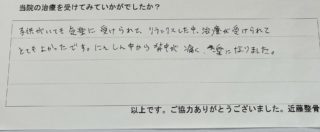 当院の治療を受けてみていかがでしたか？
子供がいても気楽に受けられて、リラックスした中、治療が受けられて
とてもよかったです。にんしん中から背中が痛く、楽になりました。
以上です。ご協力ありがとうございました。近藤整骨